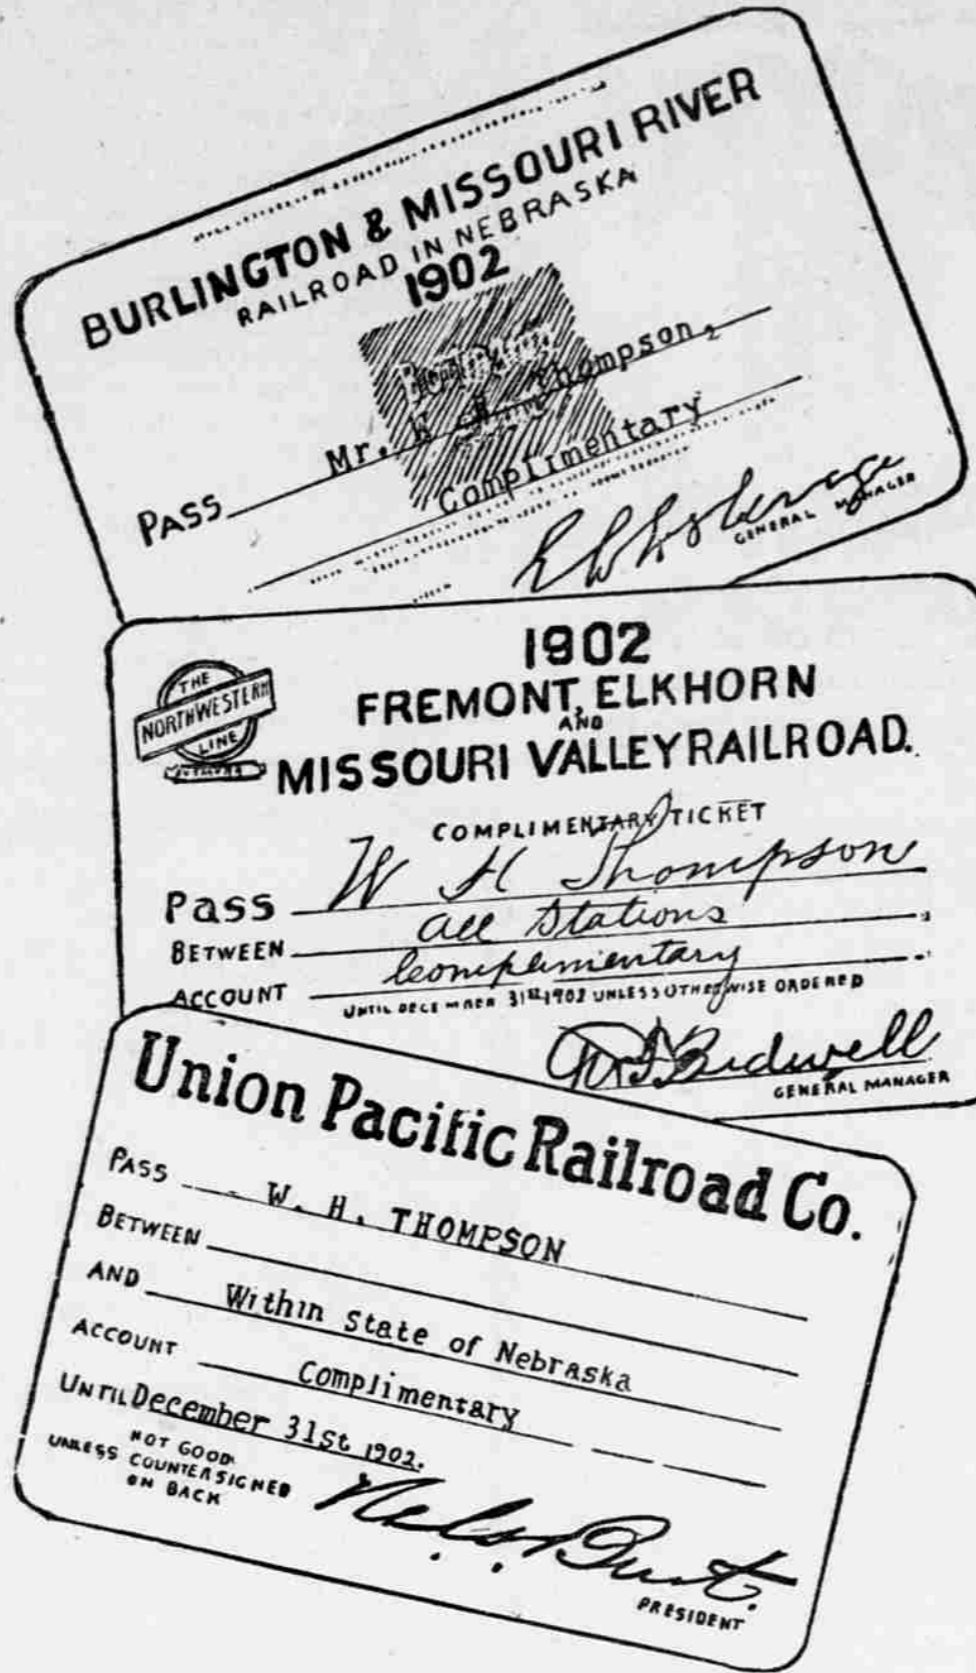 BURLINGTON & MISSOURI RIVER
RAILROAD IN NEBRASKA
1902
PASS Mr. W H. Thompson,
Complimentary
GENERAL MANAGER
1902
THE
NORTHWESTERN
LINE
FREMONT, ELKHORN
AND
MISSOURI VALLEY RAILROAD.
COMPLIMENTARY TICKET
Pass W H Thompson
BETWEEN all Stations,
ACCOUNT Complimentary.
UNTIL DECEMBER 31ST 1902 UNLESS OTHERWISE ORDERED
Bidwell
GENERAL MANAGER
Union Pacific Railroad Co.
PASS W. H. THOMPSON
BETWEEN
AND Within State of Nebraska
ACCOUNT Complimentary
UNTIL December 31st 1902.
NOT GOOD
UNLESS COUNTERSIGNED
ON BACK
PRESIDENT